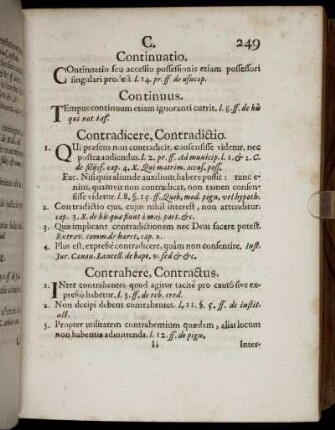 C. 249
Continuatio.
COntinuatio seu accessio possessionis etiam possessori
singulari prodest. l. 14. pr. ff. de usucap.
Continuus.
TEmpus continuum etiam ignoranti currit. l. 8. ff. de his
qui not. inf.
Contradicere, Contradictio.
1. QUi præsens non contradicit, consensisse videtur, nec
postea audiendus. l. 2. pr. ff. Ad municip. l. 1. & 2. C.
de filiisf. cap. 4. X. Qui matrim. accus. poss.
Exc. Nisi quis aliunde auxilium habere possit: tunc e-
nim, quamvis non contradicat, non tamen consen-
sisse videtur. l. 8. §. 15. ff. Quib. mod. pign. vel hypoth.
2. Contradictio ejus, cujus nihil interest, non attenditur.
cap. 3. X. de his quæ fiunt à maj. part. &c.
3. Quæ implicant contradictionem nec Deus facere potest.
Extrav. comm. de hæret. cap. 2.
4. Plus est, expressè contradicere, quàm non consentire. Inst.
Jur. Canon. Lancell. de bapt. v. sed & &c.
Contrahere, Contractus.
1. INter contrahentes quod agitur tacitè pro cautò sive ex-
presso habetur. l. 3. ff. de reb. cred.
2. Non decipi debent contrahentes. l. 11. §. 5. ff. de instit.
act.
3. Propter utilitatem contrahentium quædam, aliàs locum
non habentia admittenda. l. 12. ff. de pign.
Ii Inter-